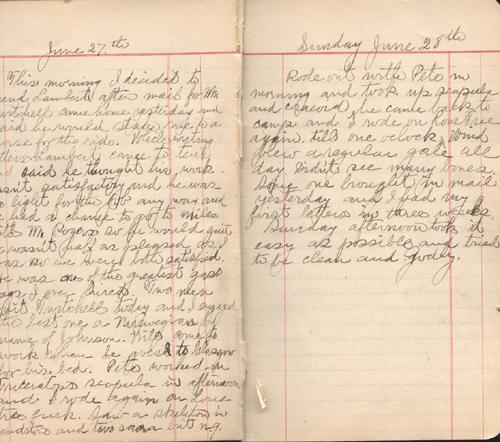 June 27.th
This morning I decided to
send Lambert after mail for Mr.
Twitchell came home yesterday and
said he would stake me to a
horse for the ride. While writing
letters Lambert came to tent
and said he thought his work
wasnt satisfactory and he was
too light for this job any way and
he had a chance to go to Miles
with Mr Rogers so he would quit.
I wasnt half as pleased as I
was so we were both satisfied.
He was one of the greatest gas
bags I ever hired. Two men
Twitchell today and I signed
the best one a Norwegian by
name of Johnson. Will come to
work when he goes to Glasgow
for his bed. Pete worked on
Triceratops scapula in afternoon
and I rode again on Lone
tree creek. Saw a skeleton in
sandstone and two but n.g.
Sunday June 28th
Rode out with Pete in
morning and took up scapula
and coracoid, he came back to
camp and I rode on horse
again till one oclock. Wind
blew a regular gale all
day. Didnt see many bones.
Some one brought in mail
yesterday and I had my
first letters in three weeks.
Sunday afternoon took it
easy as possible and tried
to be clean and godly.